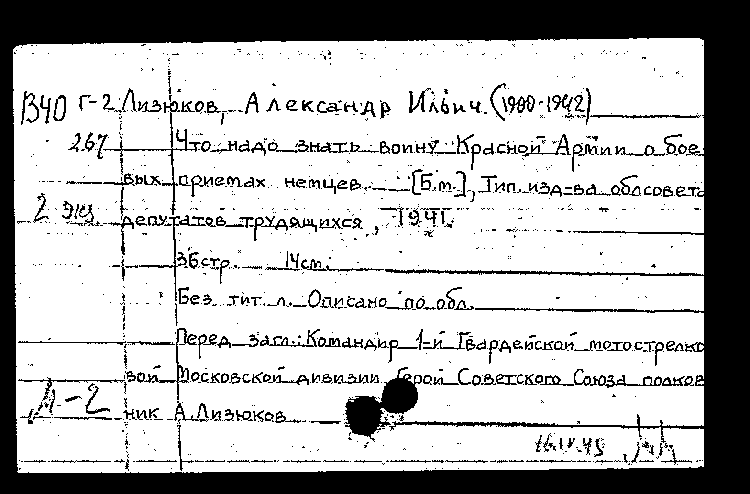 В40 Г-2 Лизюков, Александр Ильич. (1900-1942)
267 Что надо знать воину Красной Армии о бое-
вых приемах немцев. [Б.м.], Тип. изд-ва облсовета
2 экз. депутатов трудящихся, 1941.
36стр. 14см.
Без тит. л. Описано по обл.
Перед загл.: Командир 1-й Гвардейской мотострелко-
вой Московской дивизии Герой Советского Союза полков-
А-2 ник А.Лизюков
16.IV.45